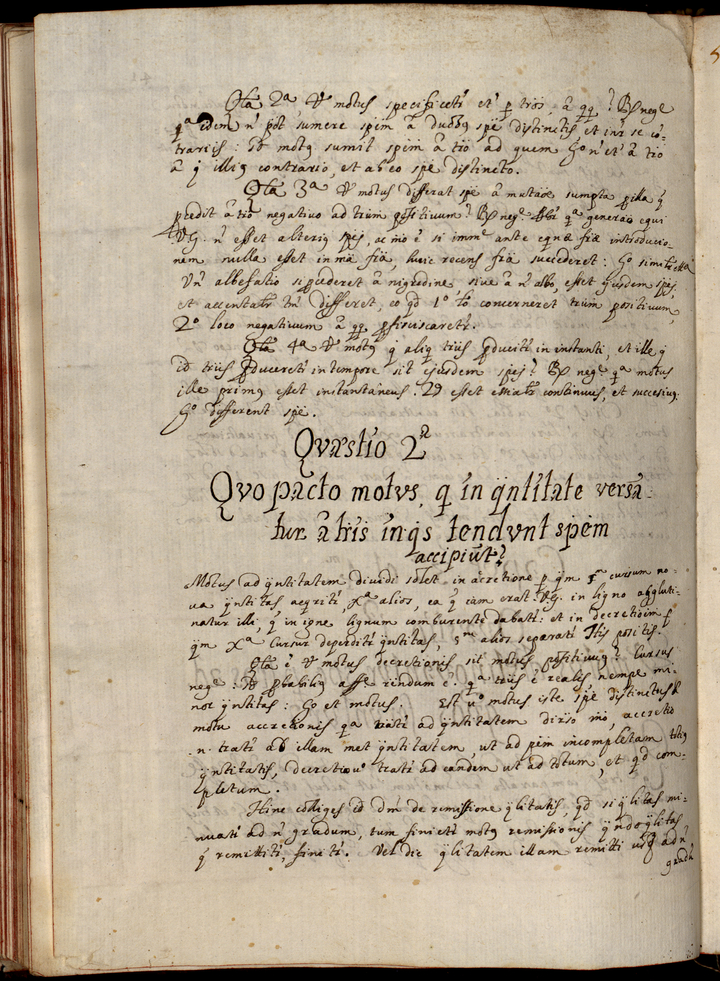 Qta 2ª Vt motus specificeti et p trõs, â qq? Rx negᵉ
qª idem n põt sumere spẽm â duobq spẽ distinctis et inr se cõ-
trariis: Id motq sumit spẽm â tio ad quem Go n et â tio
â q illiq contrario, et ab eo spẽ distincto.
Qta 3ª Vt motus differat spẽ â mutãoe sumpta
predit â tio negativo ad trum positivum? Rx negᵉ qª generãio equi
V.G. n esset alteriq spẽj, ac mõ ẽ si immᵉ ante eqnæ fræ introductio-
nem nulla esset in mã frã, huic recens frã succederet: Go
Vn albefatio si pcederet â nigredine, sive â n albo, esset ejusdem spẽj,
et accentatr tñ differet, eo qd 1º concerneret trum positivum,
2º loco negativum â qq pfisciscaretr.
Qta 4ª Vt motq q aliq triis pducitr in instanti, et ille q
id triis pduceretr in tempore sit ejusdem spẽj? Rx negᵉ qª motus
ille primq esset instantaneus. 2q esset continuus, et succesivq
Go different spẽ.
Quæstio 2ª
Quo pacto motus, q in qntitate versã-
tur â triis in qs tendunt spẽm
accipiut?
Motus ad qntitatem dividi solet in acretione p qm cursum no-
va qntitas aqriti, Xª alios, ea q iam erat V.G. in ligno agluti-
natur illi, q in igne lignum comburente dabati: et in decretioẽm p
qm Xª Cursur deperditi qntitas, alios separati Itis positis.
Qta ẽ Vt motus decretionis sit motus positivuq? Cursus
negᵉ: Id pbabiliq asserendum ẽ: qª triis ẽ realis nempe mi-
nor qntitas: Go et motus. Est uº motus iste spẽ distinctus
motu accretionis qª ad qntitatem dirso mõ, accretio
n trati ab illam met qntitatem, ut ad pẽm incompletam totiq
qntitatis, decretio uº trati ad eandem ut ad totum, et qd com-
pletum.
Hinc colliges id dm de remissione qlitatis, qd si qlitas mi-
nuati ad n gradum, tum finieti motq remissionis qndo qlitas
q remittiti, finiti. Vel dic qlitatem illam remitti usq ad n
gradũ